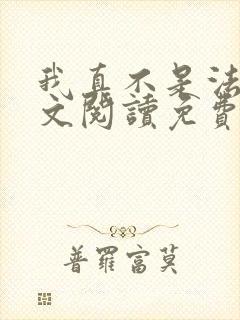 我真不是法
文閱讀免費
普羅富莫